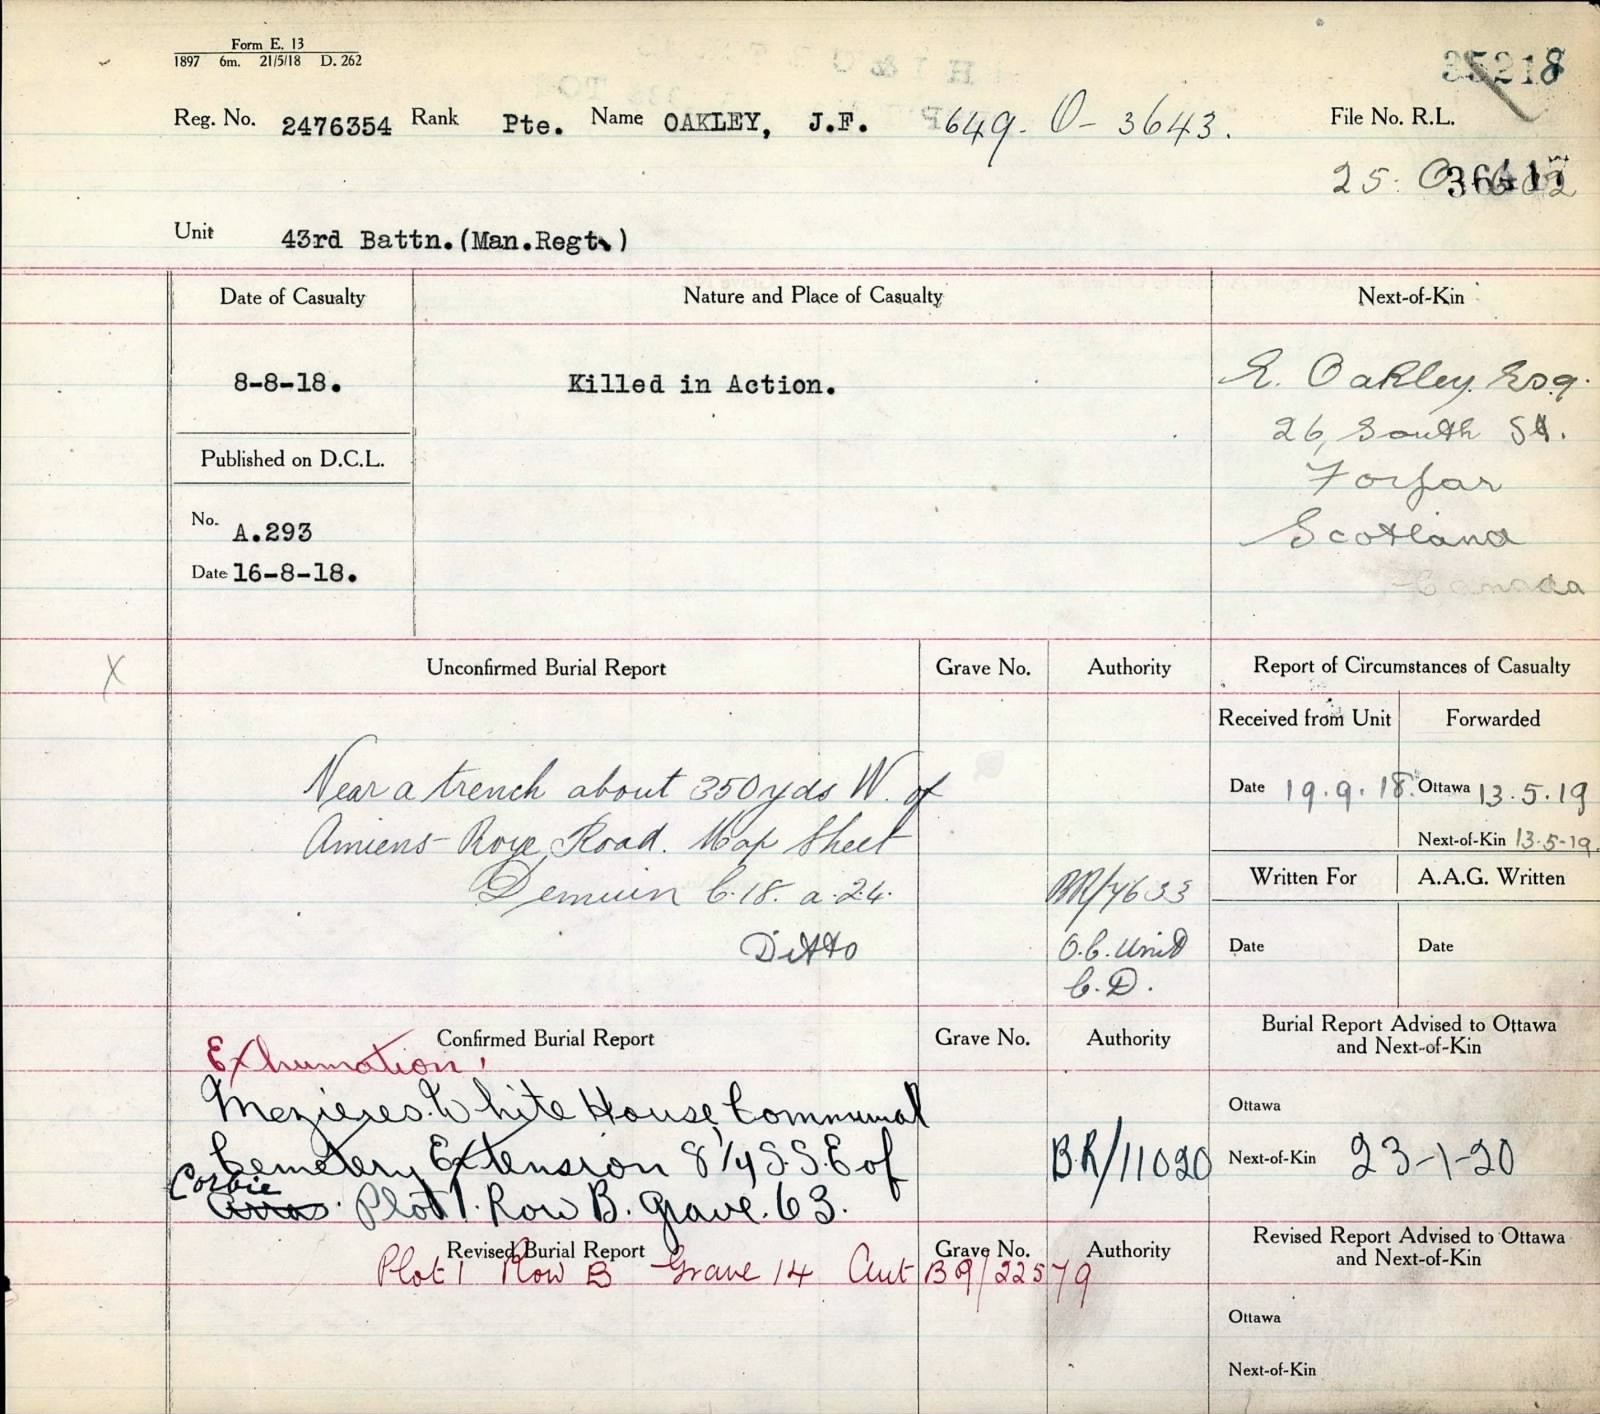 Form E. 13
1897 6m. 21/5/18 D. 262
35218
Reg. No. 2476354 Rank Pte. Name OAKLEY, J.F. 649-O-3643. File No. R.L.
25. O
Unit 43rd Battn.(Man.Regt.)
Date of Casualty Nature and Place of Casualty Next-of-Kin
8-8-18. Killed in Action. E. Oakley Esq.
26, South St.
Published on D.C.L. Forfar
No. A.293 Scotland
Date 16-8-18. Canada
X Unconfirmed Burial Report Grave No. Authority Report of Circumstances of Casualty
Received from Unit Forwarded
Near a trench about 350 yds W. of Date 19.9.18. Ottawa 13.5.19
Amiens-Roye Road. Map Sheet Next-of-Kin 13-5-19.
Demuin C.18. a.2.4. BR/7633 Written For A.A.G. Written
Ditto O.C. Unit Date Date
C.D.
Confirmed Burial Report Grave No. Authority Burial Report Advised to Ottawa and Next-of-Kin
Exhumation.
Mezieres. White House Communal Ottawa
Cemetery Extension 8 1/4 S.S.E of B.R/11020 Next-of-Kin 23-1-20
Corbie Arras. Plot 1. Row B. Grave. 63.
Revised Burial Report Grave No. Authority Revised Report Advised to Ottawa and Next-of-Kin
Plot 1 Row B Grave 14 Aut BR/22579
Ottawa
Next-of-Kin